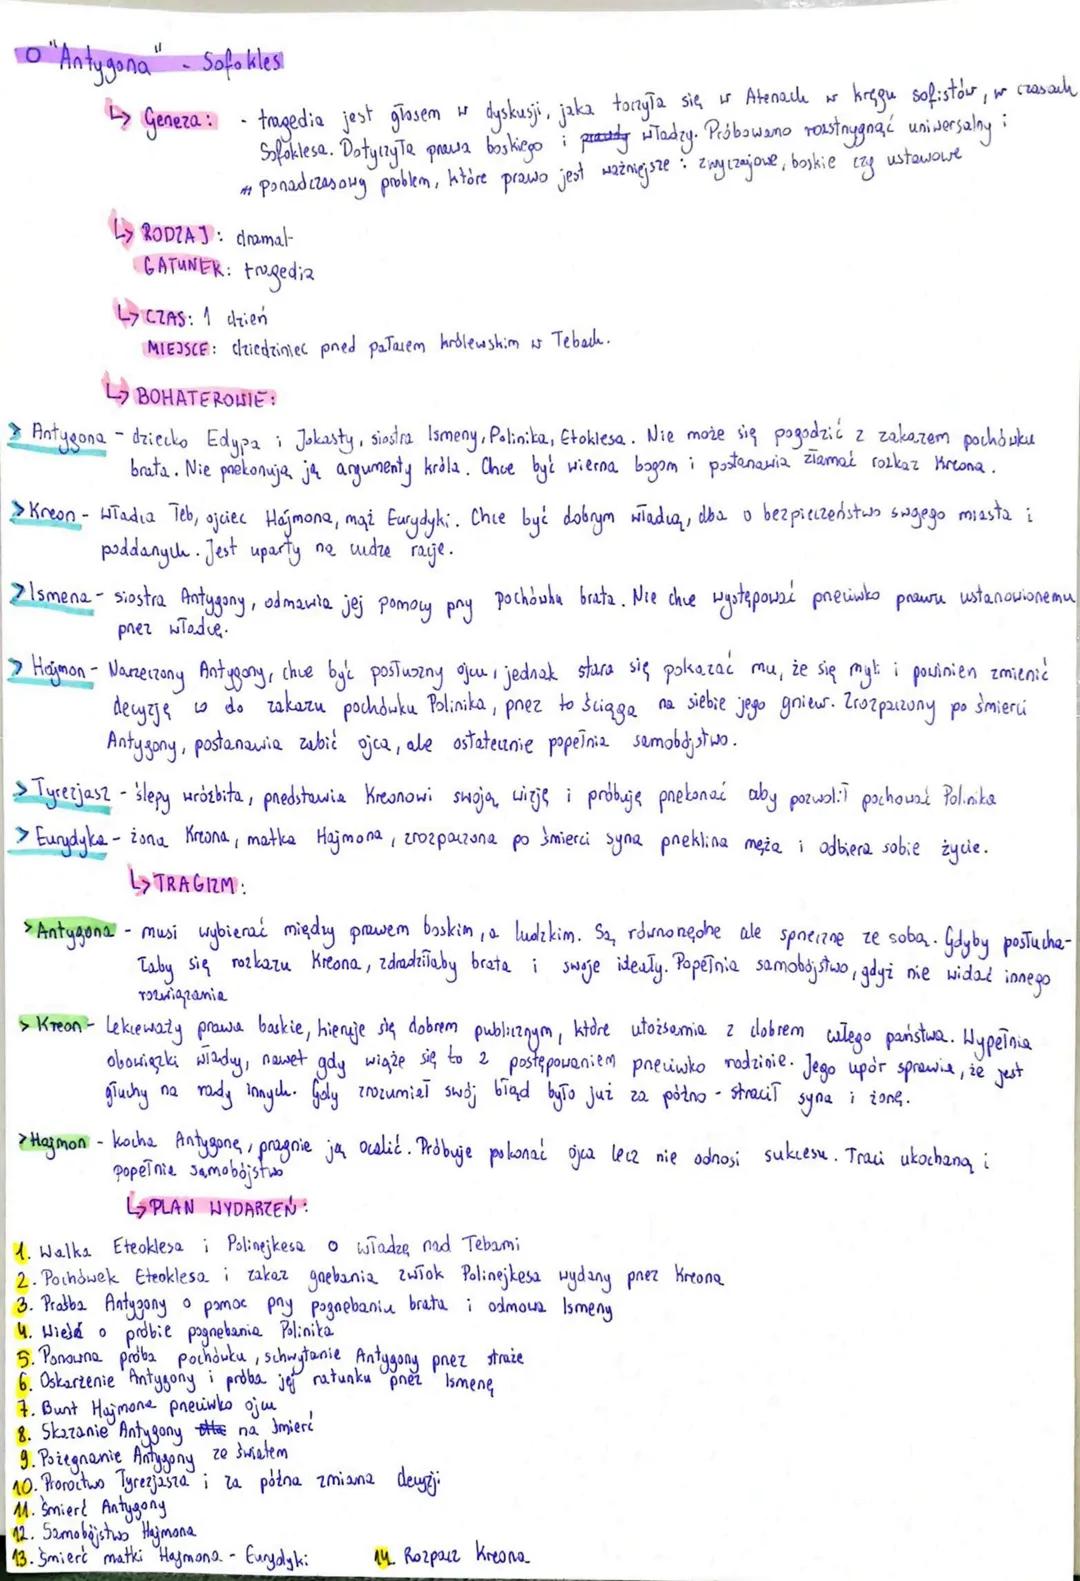 ○ "Antygona" - Sofokles
↳ Geneza: - tragedia jest głosem w dyskusji, jaka toczyła się w Atenach w kręgu sofistów, w czasach
Sofoklesa. Dotyczyła prawa boskiego i władzy. Próbowano rozstrzygnąć uniwersalny i
ponadczasowy problem, które prawo jest ważniejsze: zwyczajowe, boskie czy ustawowe
↳ RODZAJ: dramat
GATUNEK: tragedia
↳ CZAS: 1 dzień
MIEJSCE: dziedziniec przed pałacem królewskim w Tebach.
↳ BOHATEROWIE:
> Antygona - dziecko Edypa i Jokasty, siostra Ismeny, Polinika, Etoklesa. Nie może się pogodzić z zakazem pochówku
brata. Nie przekonują ją argumenty króla. Chce być wierna bogom i postanawia złamać rozkaz Kreona.
> Kreon - władca Teb, ojciec Hajmona, mąż Eurydyki. Chce być dobrym władcą, dba o bezpieczeństwo swojego miasta i
poddanych. Jest uparty na cudze racje.
> Ismena - siostra Antygony, odmawia jej pomocy przy pochówku brata. Nie chce występować przeciwko prawu ustanowionemu
przez władcę.
> Hajmon - Narzeczony Antygony, chce być posłuszny ojcu, jednak stara się pokazać mu, że się myli i powinien zmienić
decyzję co do zakazu pochówku Polinika, przez to ściąga na siebie jego gniew. Zrozpaczony po śmierci
Antygony, postanawia zabić ojca, ale ostatecznie popełnia samobójstwo.
> Tyrezjasz - ślepy wróżbita, przedstawia Kreonowi swoją wizję i próbuję przekonać aby pozwolił pochować Polinika
> Eurydyka - żona Kreona, matka Hajmona, zrozpaczona po śmierci syna przeklina męża i odbiera sobie życie.
↳ TRAGIZM:
> Antygona - musi wybierać między prawem boskim, a ludzkim. Są równorzędne ale sprzeczne ze sobą. Gdyby posłucha-
łaby się rozkazu Kreona, zdradziłaby brata i swoje ideały. Popełnia samobójstwo, gdyż nie widać innego
rozwiązania
> Kreon - Lekceważy prawa boskie, kieruje się dobrem publicznym, które utożsamia z dobrem całego państwa. Wypełnia
obowiązki władcy, nawet gdy wiąże się to z postępowaniem przeciwko rodzinie. Jego upór sprawia, że jest
głuchy na rady innych. Gdy zrozumiał swój błąd było już za późno - stracił syna i żonę.
> Hajmon - kocha Antygonę, pragnie ją ocalić. Próbuje pokonać ojca lecz nie odnosi sukcesu. Traci ukochaną i
popełnia samobójstwo
↳ PLAN WYDARZEŃ:
1. Walka Eteoklesa i Polinejkesa o władzę nad Tebami
2. Pochówek Eteoklesa i zakaz grzebania zwłok Polinejkesa wydany przez Kreona
3. Prośba Antygony o pomoc przy pogrzebaniu brata i odmowa Ismeny
4. Wieść o próbie pogrzebania Polinika
5. Ponowna próba pochówku, schwytanie Antygony przez straże
6. Oskarżenie Antygony i próba jej ratunku przez Ismenę
7. Bunt Hajmona przeciwko ojcu
8. Skazanie Antygony na śmierć
9. Pożegnanie Antygony ze światem
10. Proroctwo Tyrezjasza i za późna zmiana decyzji
11. Śmierć Antygony
12. Samobójstwo Hajmona
13. Śmierć matki Hajmona - Eurydyki
14. Rozpacz Kreona